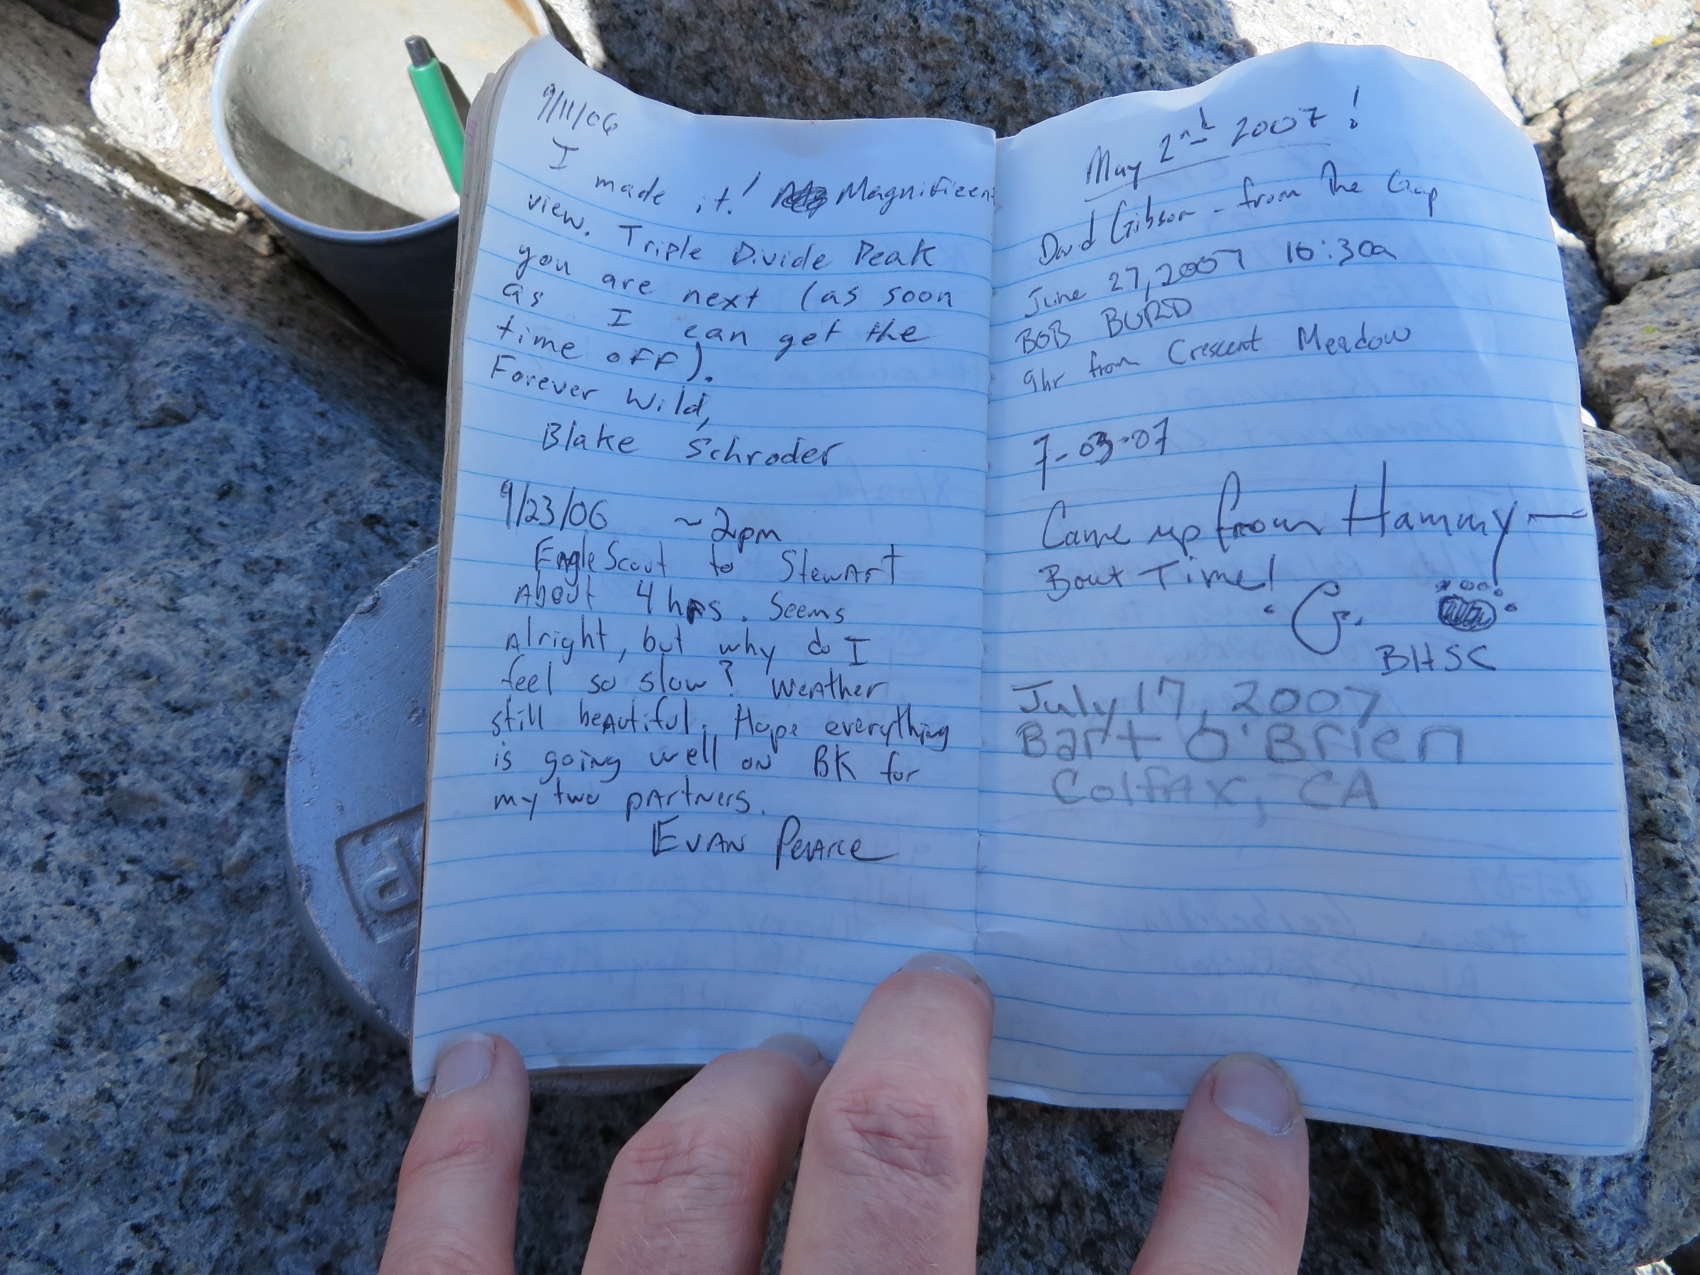 9/11/06
I made it! Magnificen
view. Triple Divide Peak
you are next (as soon
as I can get the
time off).
Forever Wild,
Blake Schroder
9/23/06 ~2pm
Eagle Scout to Stewart
About 4 hrs. Seems
Alright, but why do I
feel so slow? Weather
still beautiful. Hope everything
is going well on BK for
my two partners.
Evan Pearce
May 2nd 2007!
David Gibson - from The Gap
June 27, 2007 10:30a
BOB BURD
9hr from Crescent Meadow
7-03-07
Came up from Hammy—
Bout Time!
BHSC
July 17, 2007
Bart O'Brien
Colfax, CA